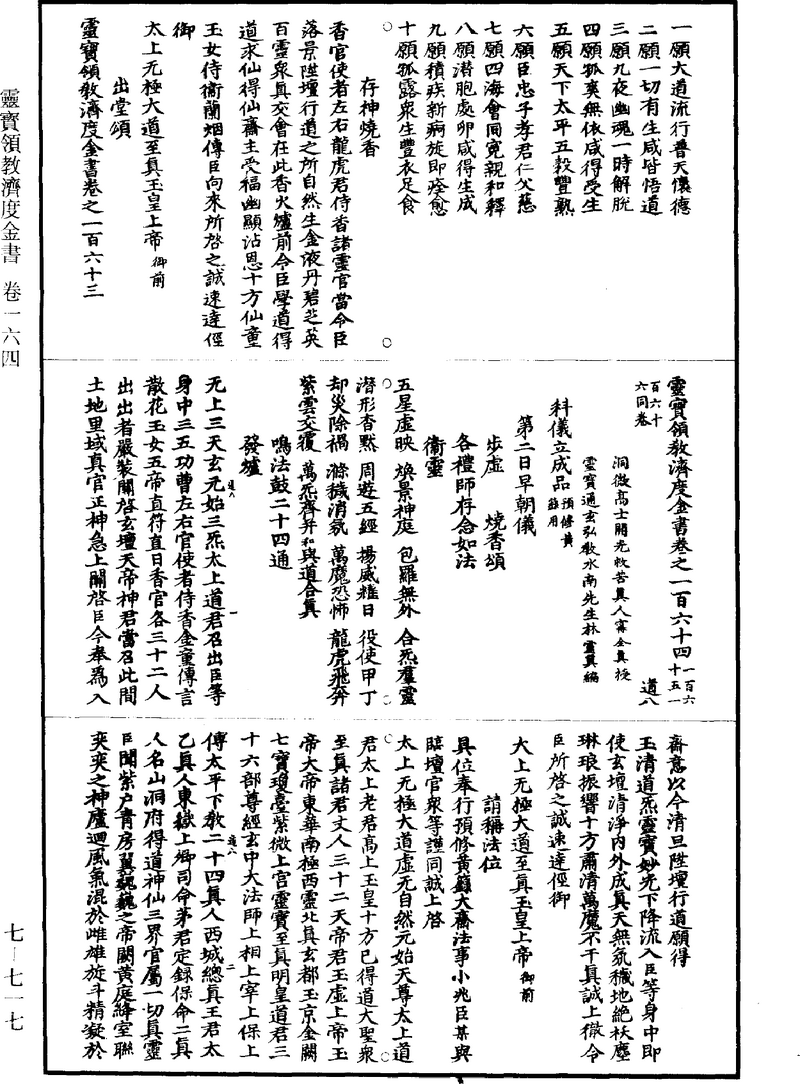 靈寶領教濟度金書 卷一六四
七—七一七
一願大道流行普天懷德
二願一切有生咸皆悟道
三願九夜幽魂一時解脫
四願孤爽無依咸得受生
五願天下太平五穀豐熟
六願臣忠子孝君仁父慈
七願四海會同寃親和釋
八願潛胞處卵咸得生成
九願積疾新痾旋即痊愈
十願孤露衆生豐衣足食
存神燒香
香官使者左右龍虎君侍香諸靈官當令臣
落景陞壇行道之所自然生金液丹碧芝英
百靈衆真交會在此香火爐前令臣學道得
道求仙得仙齋主受福幽顯沾恩十方仙童
玉女侍衛蘭烟傳臣向來所啓之誠速達徑
御
太上无極大道至真玉皇上帝 御前
出堂頌
靈寶領教濟度金書卷之一百六十三
靈寶領教濟度金書卷之一百六十四 一百六十五一百六十六同卷 道八
洞微高士開光救苦真人甯全真授
靈寶通玄弘教水南先生林靈真編
科儀立成品 預修黃籙用
第二日早朝儀
步虛 燒香頌
各禮師存念如法
衛靈
五星虛映 煥景神庭 包羅無外 合炁羣靈
潛形杳默 周遊五經 揚威耀日 役使甲丁
却災除禍 滌穢消氛 萬魔恐怖 龍虎飛奔
紫雲交覆 萬炁齊并 和與道合真
鳴法鼓二十四通
發爐
无上三天玄元始三炁太上道君召出臣等
身中三五功曹左右官使者侍香金童傳言
散花玉女五帝直符直日香官各三十二人
出出者嚴裝關啓玄壇天帝神君當召此間
土地里域真官正神急上關啓臣今奉爲入
齋意以今清旦陞壇行道願得
玉清道炁靈寶妙光下降流入臣等身中即
使玄壇清淨内外成真天無氛穢地絶妖塵
琳琅振響十方肅清萬魔不干真誠上徹令
臣所啓之誠速達徑御
大上无極大道至真玉皇上帝 御前
請稱法位
具位奉行預修黃籙大齋法事小兆臣某與
臨壇官衆等謹同誠上啓
太上无極大道虛无自然元始天尊太上道
君太上老君高上玉皇十方已得道大聖衆
至真諸君丈人三十二天帝君玉虛上帝玉
帝大帝東華南極西靈北真玄都玉京金闕
七寶瓊臺紫微上宫靈寶至真明皇道君三
十六部尊經玄中大法師上相上宰上保上
傳太平下教二十四真人西城總真王君太
乙真人東嶽上卿司命茅君定録保命二真
人名山洞府得道神仙三界官屬一切真靈
臣聞紫户青房翼巍巍之帝闕黃庭絳室聯
奕奕之神廬迴風氣混於雌雄旋斗精凝於